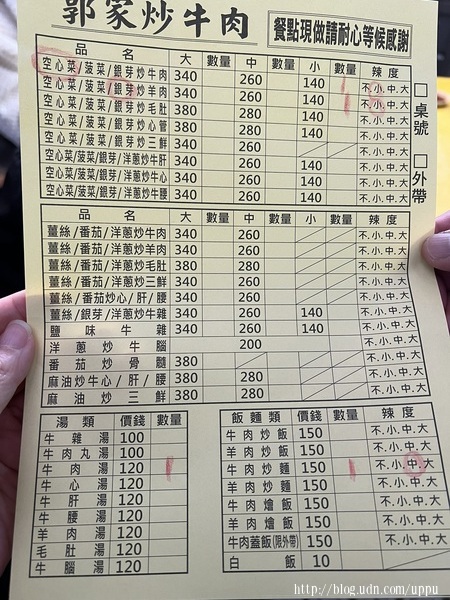 郭家炒牛肉
餐點現做請耐心等候感謝
品名 大 數量 中 數量 小 數量 辣度
空心菜/菠菜/銀芽炒牛肉 340 260 140 不.小.中.大
空心菜/菠菜/銀芽炒羊肉 340 260 140 不.小.中.大
空心菜/菠菜/銀芽炒毛肚 380 280 140 不.小.中.大
空心菜/菠菜/銀芽炒心管 380 280 140 不.小.中.大
空心菜/菠菜/銀芽炒三鮮 340 260 不.小.中.大
空心菜/菠菜/銀芽/洋蔥炒牛肝 340 260 140 不.小.中.大
空心菜/菠菜/銀芽/洋蔥炒牛心 340 260 140 不.小.中.大
空心菜/菠菜/銀芽/洋蔥炒牛腰 340 260 140 不.小.中.大
□桌號 □外帶
品名 大 數量 中 數量 小 數量 辣度
薑絲/番茄/洋蔥炒牛肉 340 260 不.小.中.大
薑絲/番茄/洋蔥炒羊肉 340 260 不.小.中.大
薑絲/番茄/洋蔥炒毛肚 380 280 不.小.中.大
薑絲/番茄/洋蔥炒三鮮 340 260 不.小.中.大
薑絲/番茄炒心/肝/腰 340 260 不.小.中.大
薑絲/銀芽/洋蔥炒牛雜 340 260 140 不.小.中.大
鹽味牛雜 340 260 140 不.小.中.大
洋蔥炒牛腦 200 不.小.中.大
番茄炒骨髓 380 不.小.中.大
麻油炒牛心/肝/腰 380 280 不.小.中.大
麻油炒三鮮 380 280 不.小.中.大
湯類 價錢 數量
牛雜湯 100
牛肉丸湯 100
牛肉湯 120
牛心湯 120
牛肝湯 120
牛腰湯 120
羊肉湯 120
毛肚湯 120
牛腦湯 120
飯麵類 價錢 數量 辣度
牛肉炒飯 150 不.小.中.大
羊肉炒飯 150 不.小.中.大
牛肉炒麵 150 不.小.中.大
羊肉炒麵 150 不.小.中.大
牛肉燴飯 150 不.小.中.大
羊肉燴飯 150 不.小.中.大
牛肉蓋飯(限外帶) 150 不.小.中.大
白飯 10
http://blog.udn.com/uppu